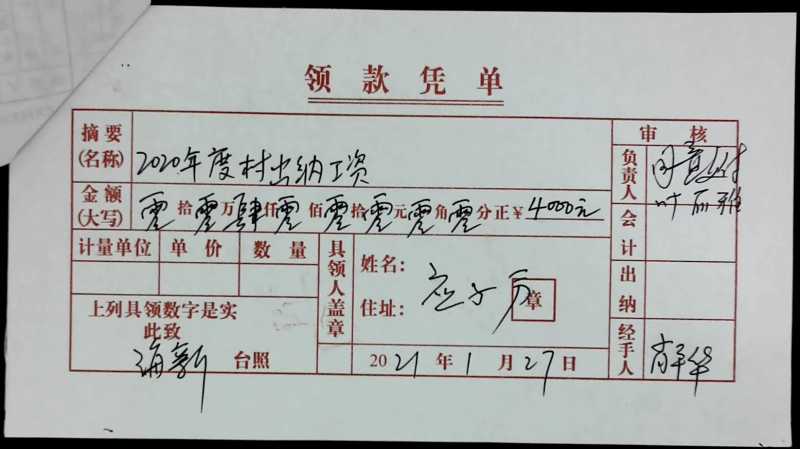 领款凭单
摘要(名称) 2020年度村出纳工资
审核
负责人 同意付
叶丽雅
金额(大写) 零拾零万肆仟零佰零拾零元零角零分正¥4000元
会计
计量单位 单价 数量
具领人盖章
姓名:
住址:
章
出纳
上列具领数字是实
此致
海新 台照
2021年1月27日
经手人 肖华